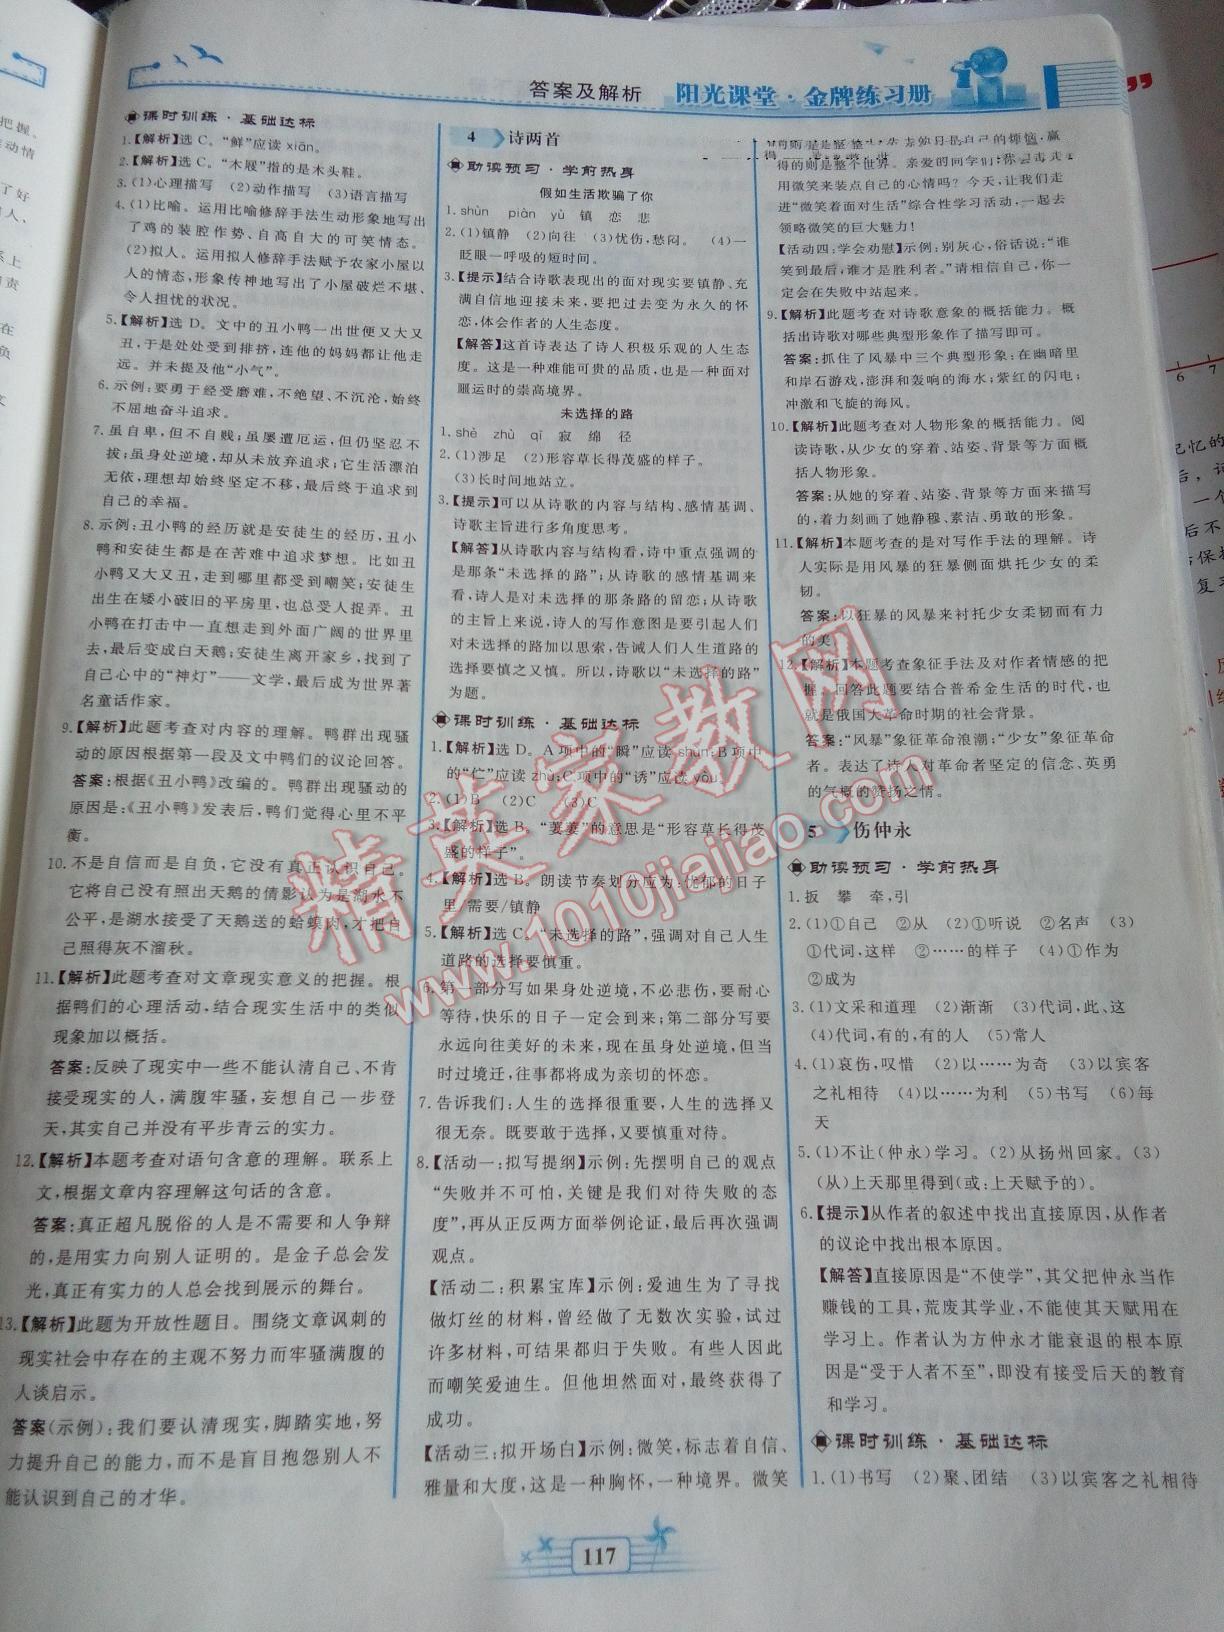 答案及解析 阳光课堂·金牌练习册
课时训练·基础达标
1.【解析】选C。“鲜”应读xiān。
2.【解析】选C。“木屐”指的是木头鞋。
3.(1)心理描写 (2)动作描写 (3)语言描写
4.(1)比喻。运用比喻修辞手法生动形象地写出
了鸡的装腔作势、自高自大的可笑情态。
(2)拟人。运用拟人修辞手法赋予农家小屋以
人的情态,形象传神地写出了小屋破烂不堪、
令人担忧的状况。
5.【解析】选D。文中的丑小鸭一出世便又大又
丑,于是处处受到排挤,连他的妈妈都让他走
远。并未提及他“小气”。
6.示例:要勇于经受磨难,不绝望、不沉沦,始终
不屈地奋斗追求。
7.虽自卑,但不自贱;虽屡遭厄运,但仍坚忍不
拔;虽身处逆境,却从未放弃追求;它生活漂泊
无依,理想却始终坚定不移,最后终于追求到
自己的幸福。
8.示例:丑小鸭的经历就是安徒生的经历,丑小
鸭和安徒生都是在苦难中追求梦想。比如丑
小鸭又大又丑,走到哪里都受到嘲笑;安徒生
出生在矮小破旧的平房里,也总受人捉弄。丑
小鸭在打击中一直想走到外面广阔的世界里
去,最后变成白天鹅;安徒生离开家乡,找到了
自己心中的“神灯”——文学,最后成为世界著
名童话作家。
9.【解析】此题考查对内容的理解。鸭群出现骚
动的原因根据第一段及文中鸭们的议论回答。
答案:根据《丑小鸭》改编的。鸭群出现骚动的
原因是:《丑小鸭》发表后,鸭们觉得心里不平
衡。
10.不是自信而是自负,它没有真正认识自己。
它将自己没有照出天鹅的倩影认为是湖水不
公平,是湖水接受了天鹅送的蛤蟆肉,才把自
己照得灰不溜秋。
11.【解析】此题考查对文章现实意义的把握。根
据鸭们的心理活动,结合现实生活中的类似
现象加以概括。
答案:反映了现实中一些不能认清自己、不肯
接受现实的人,满腹牢骚,妄想自己一步登
天,其实自己并没有平步青云的实力。
12.【解析】本题考查对语句含意的理解。联系上
文,根据文章内容理解这句话的含意。
答案:真正超凡脱俗的人是不需要和人争辩
的,是用实力向别人证明的。是金子总会发
光,真正有实力的人总会找到展示的舞台。
13.【解析】此题为开放性题目。围绕文章讽刺的
现实社会中存在的主观不努力而牢骚满腹的
人谈启示。
答案(示例):我们要认清现实,脚踏实地,努
力提升自己的能力,而不是盲目抱怨别人不
能认识到自己的才华。
4 诗两首
助读预习·学前热身
假如生活欺骗了你
1.shùn piàn yù 镇 恋 悲
2.(1)镇静 (2)向往 (3)忧伤,愁闷。 (4)一
眨眼一呼吸的短时间。
3.【提示】结合诗歌表现出的面对现实要镇静、充
满自信地迎接未来,要把过去变为永久的怀
恋,体会作者的人生态度。
【解答】这首诗表达了诗人积极乐观的人生态
度。这是一种难能可贵的品质,也是一种面对
噩运时的崇高境界。
未选择的路
1.shè zhù qī 寂 绵 径
2.(1)涉足 (2)形容草长得茂盛的样子。
(3)长时间地站立。
3.【提示】可以从诗歌的内容与结构、感情基调、
诗歌主旨进行多角度思考。
【解答】从诗歌内容与结构看,诗中重点强调的
是那条“未选择的路”;从诗歌的感情基调来
看,诗人是对未选择的那条路的留恋;从诗歌
的主旨上来说,诗人的写作意图是要引起人们
对未选择的路加以思索,告诫人们人生道路的
选择要慎之又慎。所以,诗歌以“未选择的路”
为题。
课时训练·基础达标
1.【解析】选D。A项中的“瞬”应读shùn;B项中
的“伫”应读zhù;C项中的“诱”应读yòu。
2.(1)B (2)C (3)C
3.【解析】选B。“萋萋”的意思是“形容草长得茂
盛的样子”。
4.【解析】选B。朗读节奏划分应为:忧郁的日子
里/需要/镇静
5.【解析】选C。“未选择的路”,强调对自己人生
道路的选择要慎重。
6.第一部分写如果身处逆境,不必悲伤,要耐心
等待,快乐的日子一定会到来;第二部分写要
永远向往美好的未来,现在虽身处逆境,但当
时过境迁,往事都将成为亲切的怀恋。
7.告诉我们:人生的选择很重要,人生的选择又
很无奈。既要敢于选择,又要慎重对待。
8.【活动一:拟写提纲】示例:先摆明自己的观点
“失败并不可怕,关键是我们对待失败的态
度”,再从正反两方面举例论证,最后再次强调
观点。
【活动二:积累宝库】示例:爱迪生为了寻找
做灯丝的材料,曾经做了无数次实验,试过
许多材料,可结果都归于失败。有些人因此
而嘲笑爱迪生。但他坦然面对,最终获得了
成功。
【活动三:拟开场白】示例:微笑,标志着自信、
雅量和大度,这是一种胸怀,一种境界。微笑
得的则是整个世界。亲爱的同学们,你会善于
用微笑来装点自己的心情吗?今天,让我们走
进“微笑着面对生活”综合性学习活动,一起去
领略微笑的巨大魅力!
【活动四:学会劝慰】示例:别灰心,俗话说:“谁
笑到最后,谁才是胜利者。”请相信自己,你一
定会在失败中站起来。
9.【解析】此题考查对诗歌意象的概括能力。概
括出诗歌对哪些典型形象作了描写即可。
答案:抓住了风暴中三个典型形象:在幽暗里
和岸石游戏,澎湃和轰响的海水;紫红的闪电;
冲激和飞旋的海风。
10.【解析】此题考查对人物形象的概括能力。阅
读诗歌,从少女的穿着、站姿、背景等方面概
括人物形象。
答案:从她的穿着、站姿、背景等方面来描写
的,着力刻画了她静穆、素洁、勇敢的形象。
11.【解析】本题考查的是对写作手法的理解。诗
人实际是用风暴的狂暴侧面烘托少女的柔
韧。
答案:以狂暴的风暴来衬托少女柔韧而有力
的美。
12.【解析】本题考查象征手法及对作者情感的把
握。回答此题要结合普希金生活的时代,也
就是俄国大革命时期的社会背景。
答案:“风暴”象征革命浪潮;“少女”象征革命
者。表达了诗人对革命者坚定的信念、英勇
的气概的赞扬之情。
5 伤仲永
助读预习·学前热身
1.扳 攀 牵,引
2.(1)①自己 ②从 (2)①听说 ②名声 (3)
①代词,这样 ②……的样子 (4)①作为
②成为
3.(1)文采和道理 (2)渐渐 (3)代词,此、这
(4)代词,有的,有的人 (5)常人
4.(1)哀伤,叹惜 (2)以……为奇 (3)以宾客
之礼相待 (4)以……为利 (5)书写 (6)每
天
5.(1)不让(仲永)学习。(2)从扬州回家。(3)
(从)上天那里得到(或:上天赋予的)。
6.【提示】从作者的叙述中找出直接原因,从作者
的议论中找出根本原因。
【解答】直接原因是“不使学”,其父把仲永当作
赚钱的工具,荒废其学业,不能使其天赋用在
学习上。作者认为方仲永才能衰退的根本原
因是“受于人者不至”,即没有接受后天的教育
和学习。
课时训练·基础达标
1.(1)书写 (2)聚、团结 (3)以宾客之礼相待
117
精英家教网
www.1010jiajiao.com